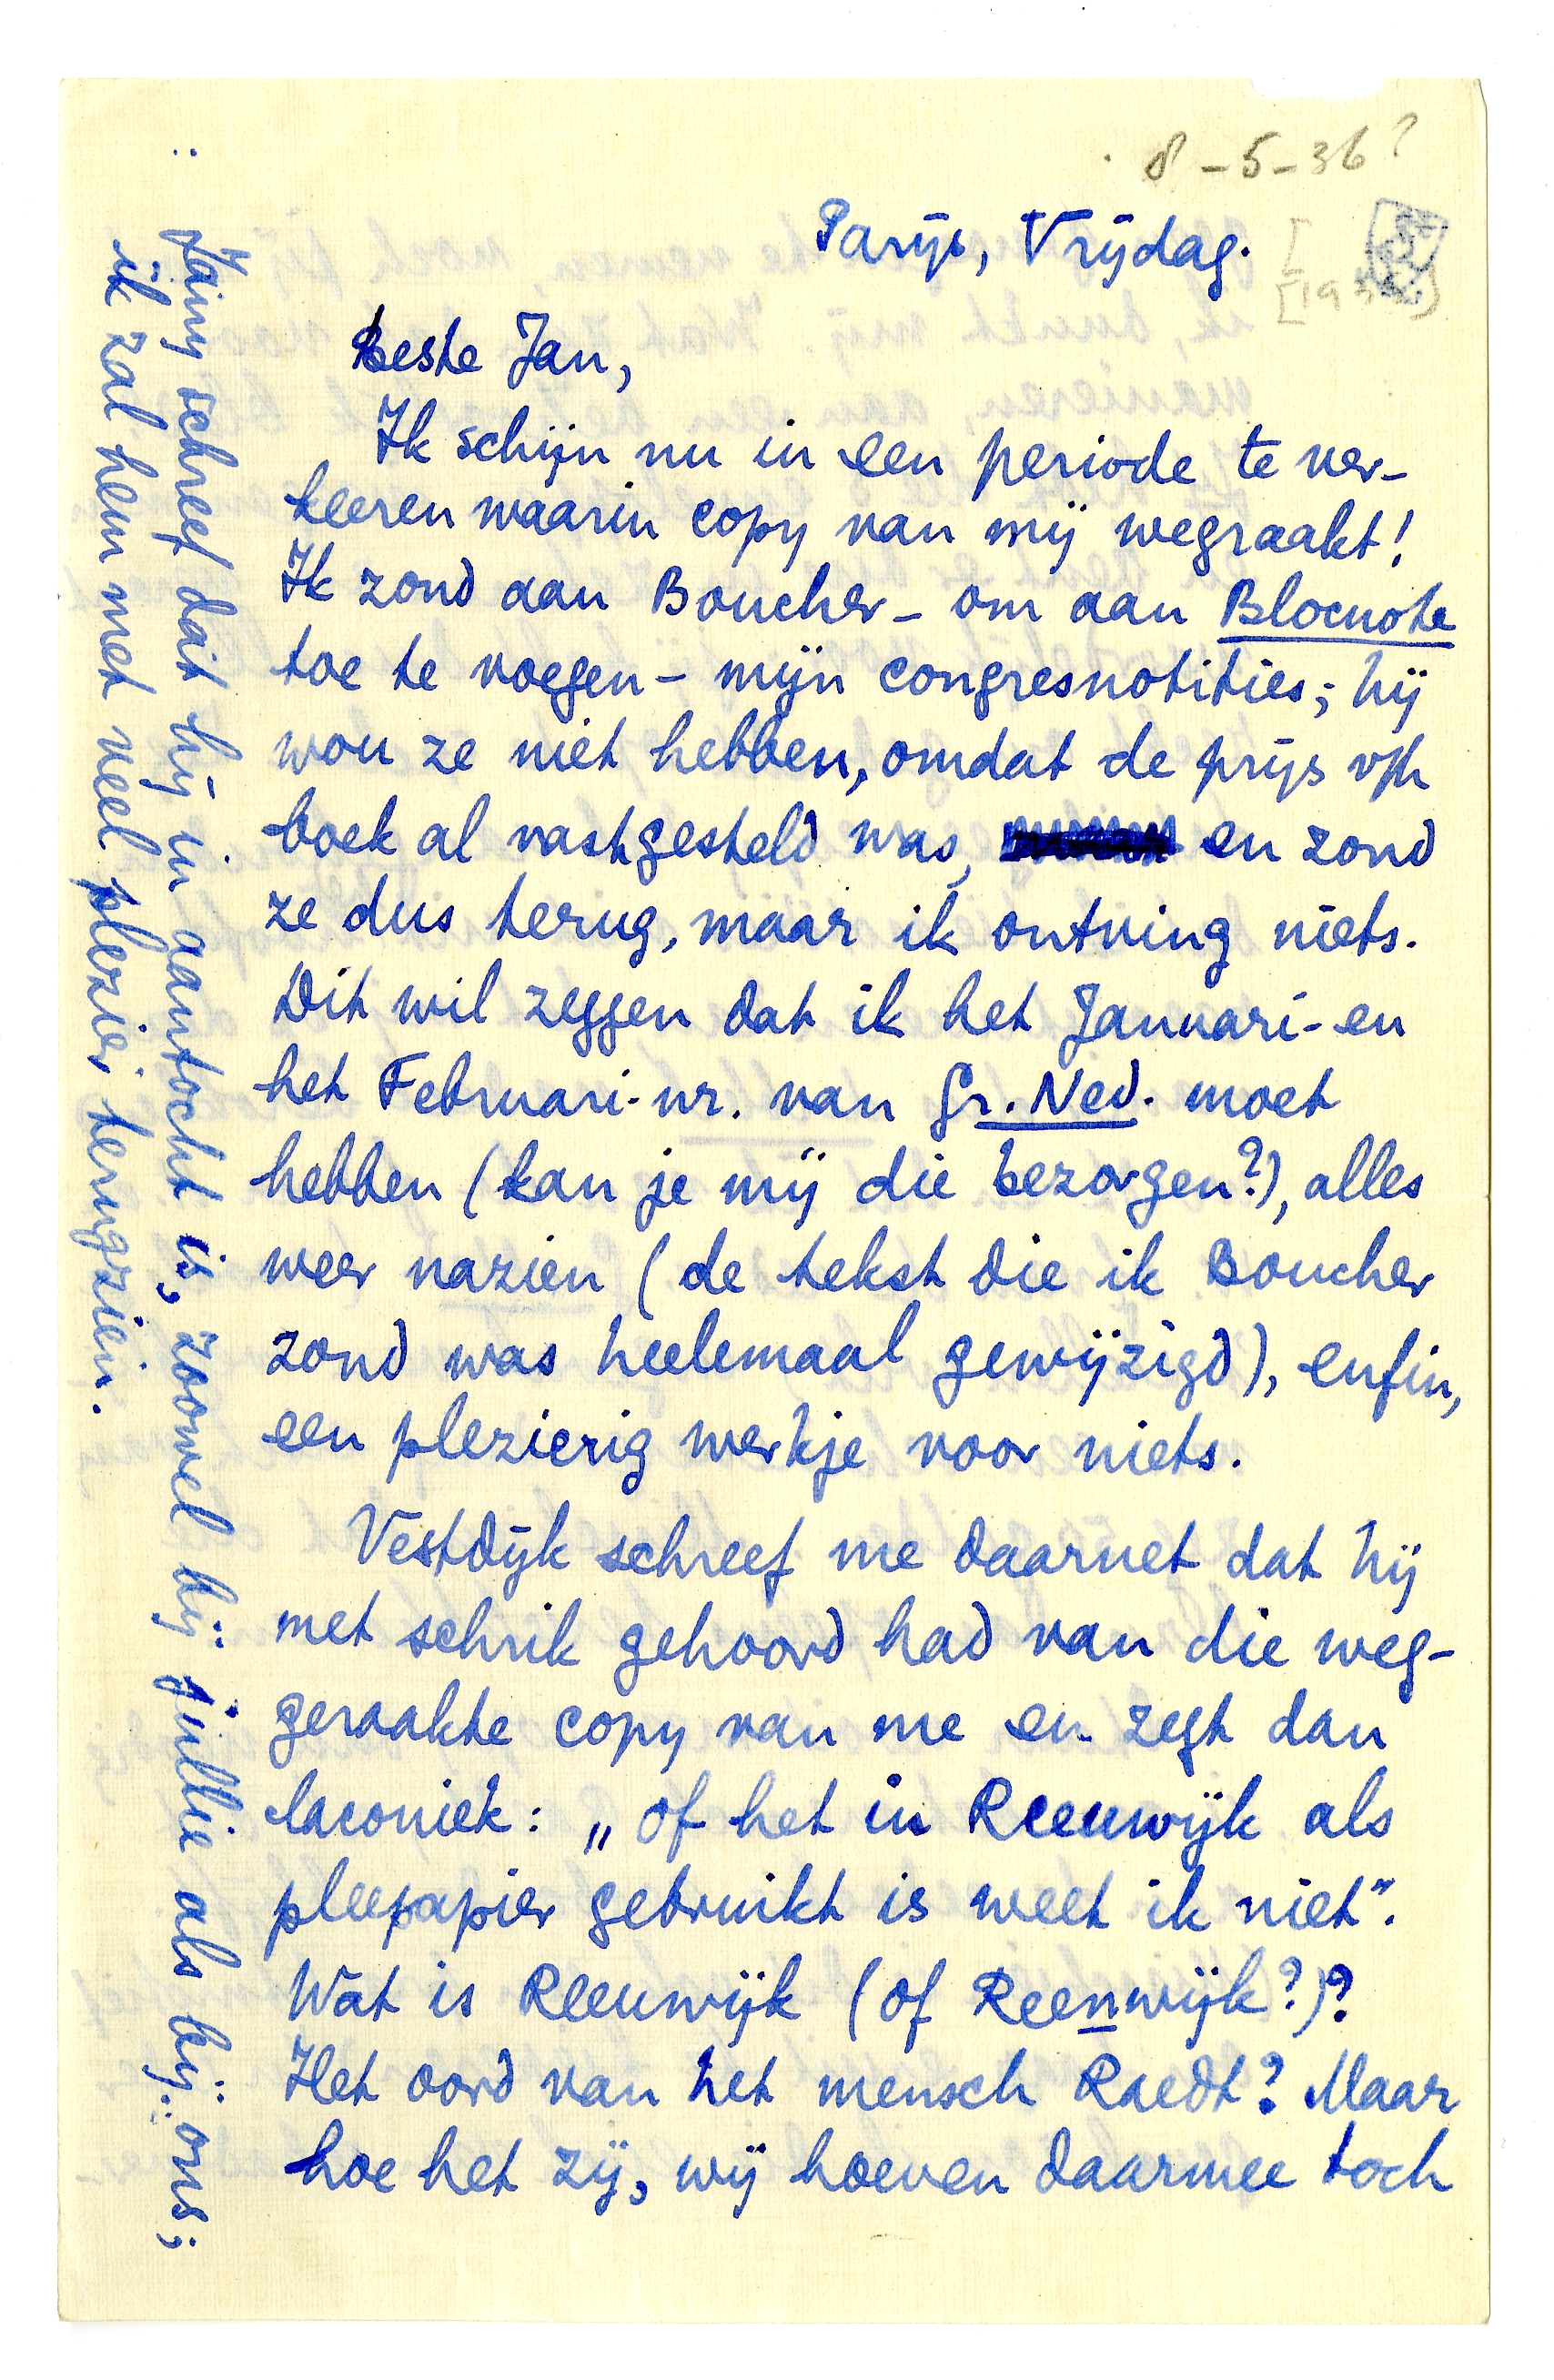 8-5-36?
Parijs, Vrijdag.
[193
Beste Jan,
Ik schijn nu in een periode te ver-
keeren waarin copy van mij wegraakt!
Ik zond aan Boucher - om aan Blocnote
toe te voegen - mijn congresnotities; hij
wou ze niet hebben, omdat de prijs v/h
boek al vastgesteld was, en zond
ze dus terug, maar ik ontving niets.
Dit wil zeggen dat ik het Januari- en
het Februari-nr. van Gr. Ned. moet
hebben (kan je mij die bezorgen?), alles
weer nazien (de tekst die ik Boucher
zond was heelemaal gewijzigd), enfin,
een plezierig werkje voor niets.
Vestdijk schreef me daarnet dat hij
met schrik gehoord had van die weg-
geraakte copy van me en zegt dan
laconiek: „Of het in Reeuwijk als
pleepapier gebruikt is weet ik niet”.
Wat is Reeuwijk (of Reenwijk?)?
Het oord van het mensch Raedt? Maar
hoe het zij, wij hoeven daarmee toch
Jany schreef dat hij in aantocht is, zoowel bij jullie als bij ons;
ik zal hem met veel plezier terugzien.